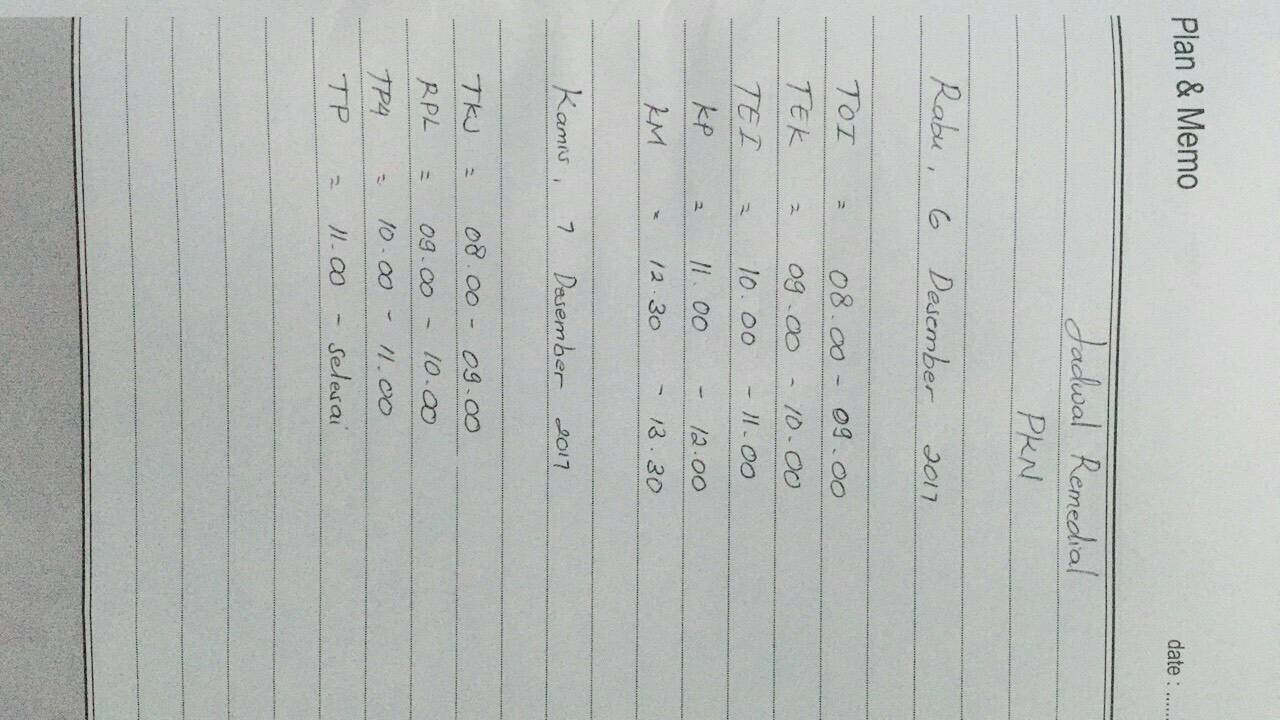 Plan & Memo
date : ......
Jadwal Remedial
PKN
Rabu, 6 Desember 2017
TOI = 08.00 - 09.00
TEK = 09.00 - 10.00
TEI = 10.00 - 11.00
KP = 11.00 - 12.00
KM = 12.30 - 13.30
Kamis, 7 Desember 2017
TKJ = 08.00 - 09.00
RPL = 09.00 - 10.00
TP4 = 10.00 - 11.00
TP = 11.00 - selesai